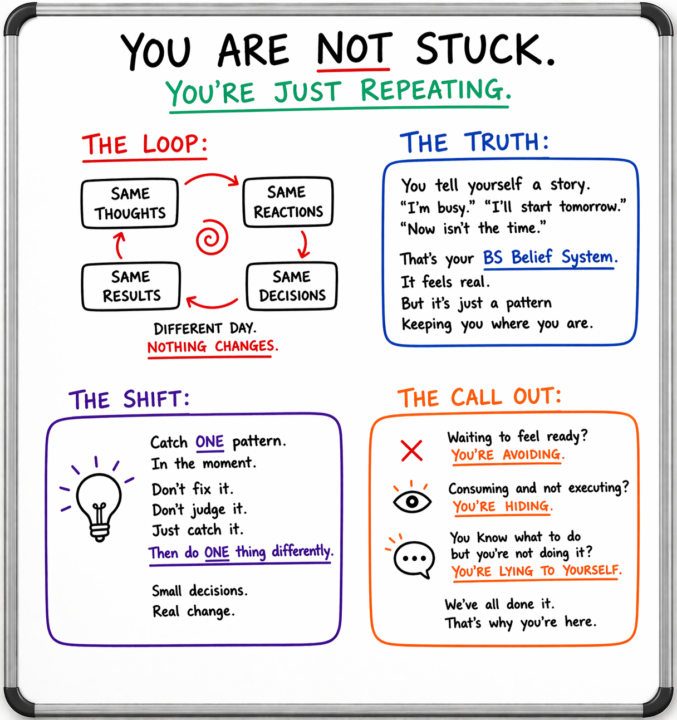 YOU ARE NOT STUCK.
YOU'RE JUST REPEATING.
THE LOOP:
SAME
THOUGHTS
SAME
REACTIONS
SAME
DECISIONS
SAME
RESULTS
DIFFERENT DAY.
NOTHING CHANGES.
THE TRUTH:
You tell yourself a story.
"I'm busy." "I'll start tomorrow."
"Now isn't the time."
That's your BS Belief System.
It feels real.
But it's just a pattern
Keeping you where you are.
THE SHIFT:
Catch ONE pattern.
In the moment.
Don't fix it.
Don't judge it.
Just catch it.
Then do ONE thing differently.
Small decisions.
Real change.
THE CALL OUT:
Waiting to feel ready?
YOU'RE AVOIDING.
Consuming and not executing?
YOU'RE HIDING.
You Know what to do
but you're not doing it?
YOU'RE LYING TO YOURSELF.
We've all done it.
That's why you're here.